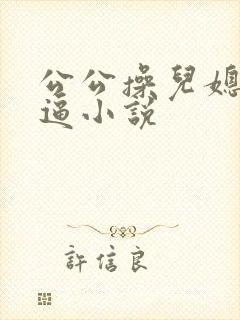 公公操兒媳
逼小說
許信良